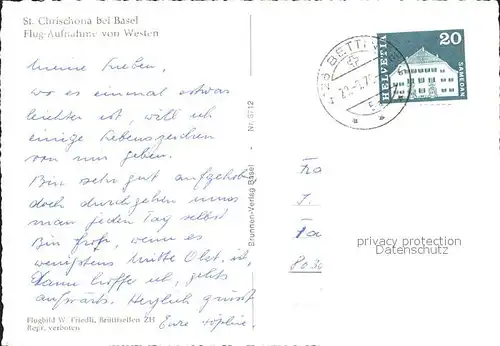 St. Chrischona bei Basel
Flug-Aufnahme von Westen
Meine Lieben,
wo es einmal etwas
leichter ist, will ich
einige Lebenszeichen
von mir geben.
Bin sehr gut aufgehob
doch durchgehen muss
man jeden Tag selbst
Bin froh, wenn es
wenigstens Mitte Okt. ist,
Dann hoffe ich, gehts
aufwärts. Herzlich grüsst
Eure
Flugbild W. Friedli, Brüttisellen ZH
Repr. verboten
Brunnen-Verlag Basel Nr. 5712
BETTI
HELVETIA
20
SAMEDAN
privacy protection
Datenschutz